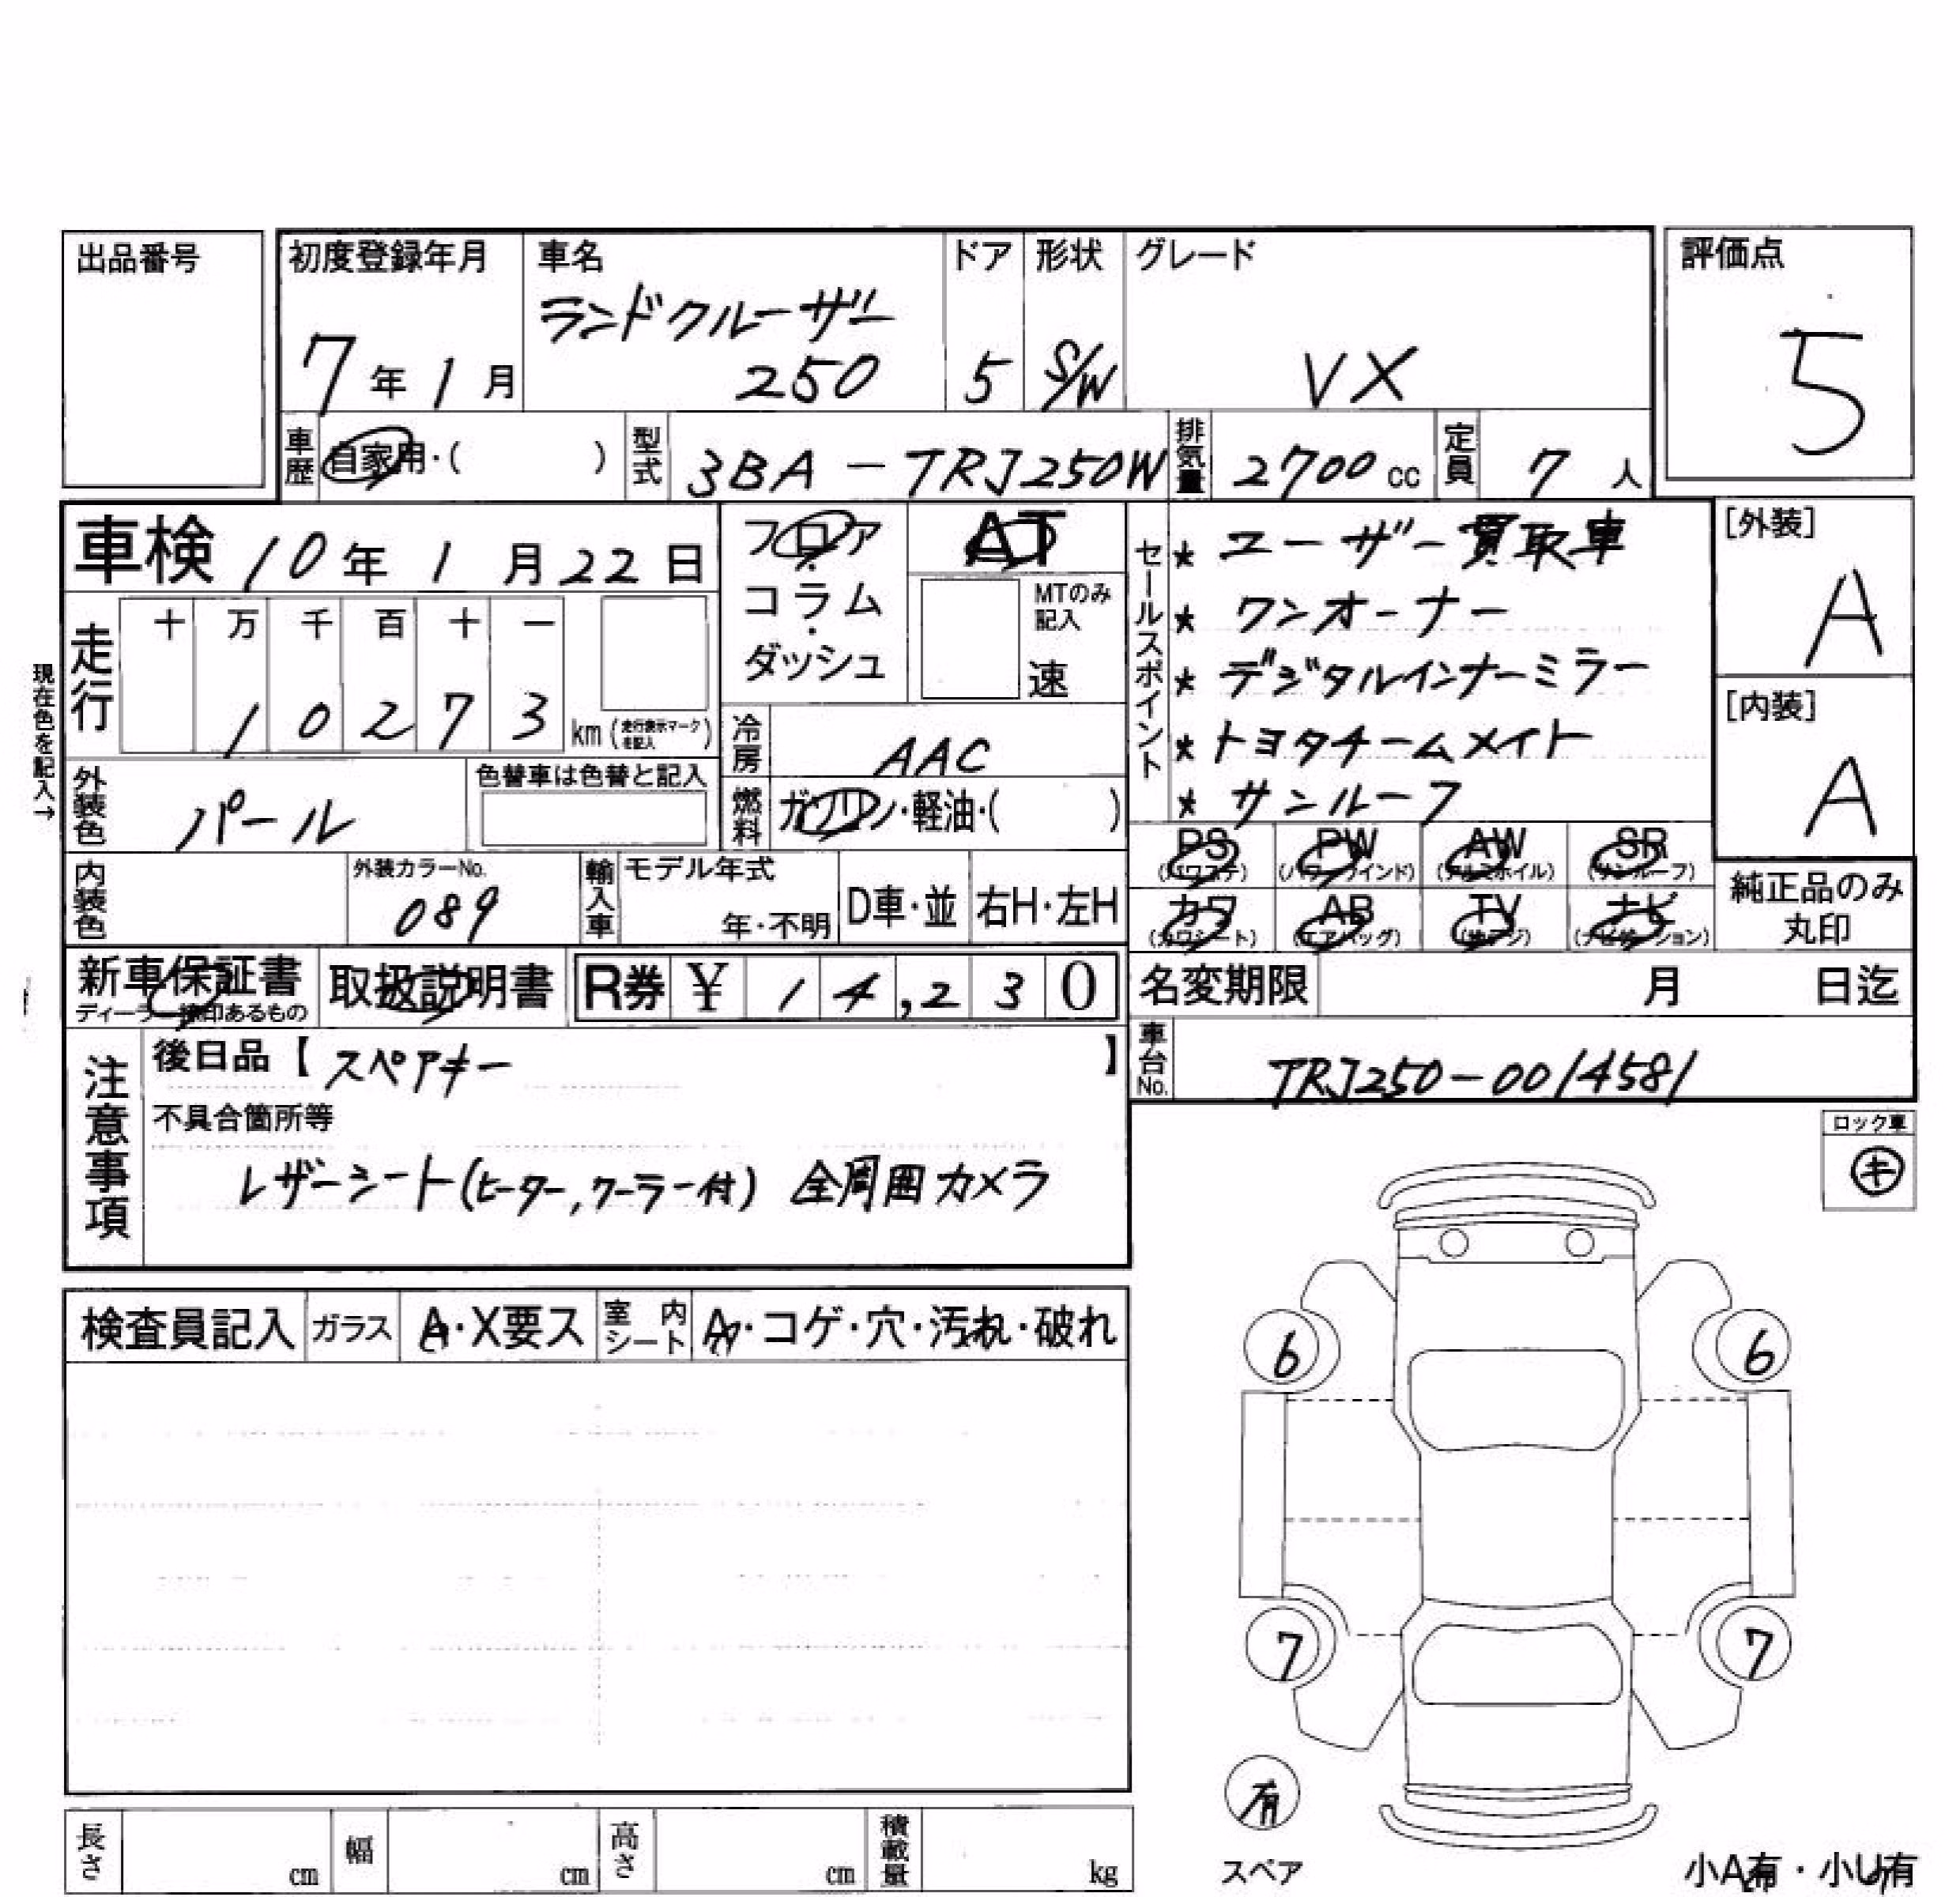 出品番号
初度登録年月 車名 ドア 形状 グレード 評価点
ランドクルーザー
7年1月 250 5 S/W VX 5
車歴 自家用・( ) 型式 3BA-TRJ250W 排気量 2700cc 定員 7人
車検 10年1月22日
フロア・コラム・ダッシュ
AT
MTのみ記入
速
セールスポイント
★ ユーザー買取車
★ ワンオーナー
★ デジタルインナーミラー
★ トヨタチームメイト
★ サンルーフ
[外装]
A
[内装]
A
現在色を記入→
走行 十 万 千 百 十 一
1 0 2 7 3 km(走行表示マークを記入)
冷房 AAC
外装色 パール 色替車は色替と記入
燃料 ガソリン・軽油・( )
PS(パワステ) PW(パワーウインド) AW(アルミホイル) SR(サンルーフ)
カワ(カワシート) AB(エアバッグ) TV(地デジ) ナビ(ナビゲーション)
純正品のみ丸印
内装色 外装カラーNo. 089 輸入車 モデル年式 年・不明 D車・並 右H・左H
新車保証書 取扱説明書 R券 ¥ 14,230
ディーラー捺印あるもの
名変期限 月 日迄
注意事項
後日品【スペアキー】
不具合箇所等
レザーシート(ヒーター,クーラー付) 全周囲カメラ
車台No. TRJ250-0014581
ロック車
キ
検査員記入 ガラス A・X要ス 室内シート A・コゲ・穴・汚れ・破れ
6 6
7 7
有
スペア
小A有・小U有
長さ cm 幅 cm 高さ cm 積載量 kg